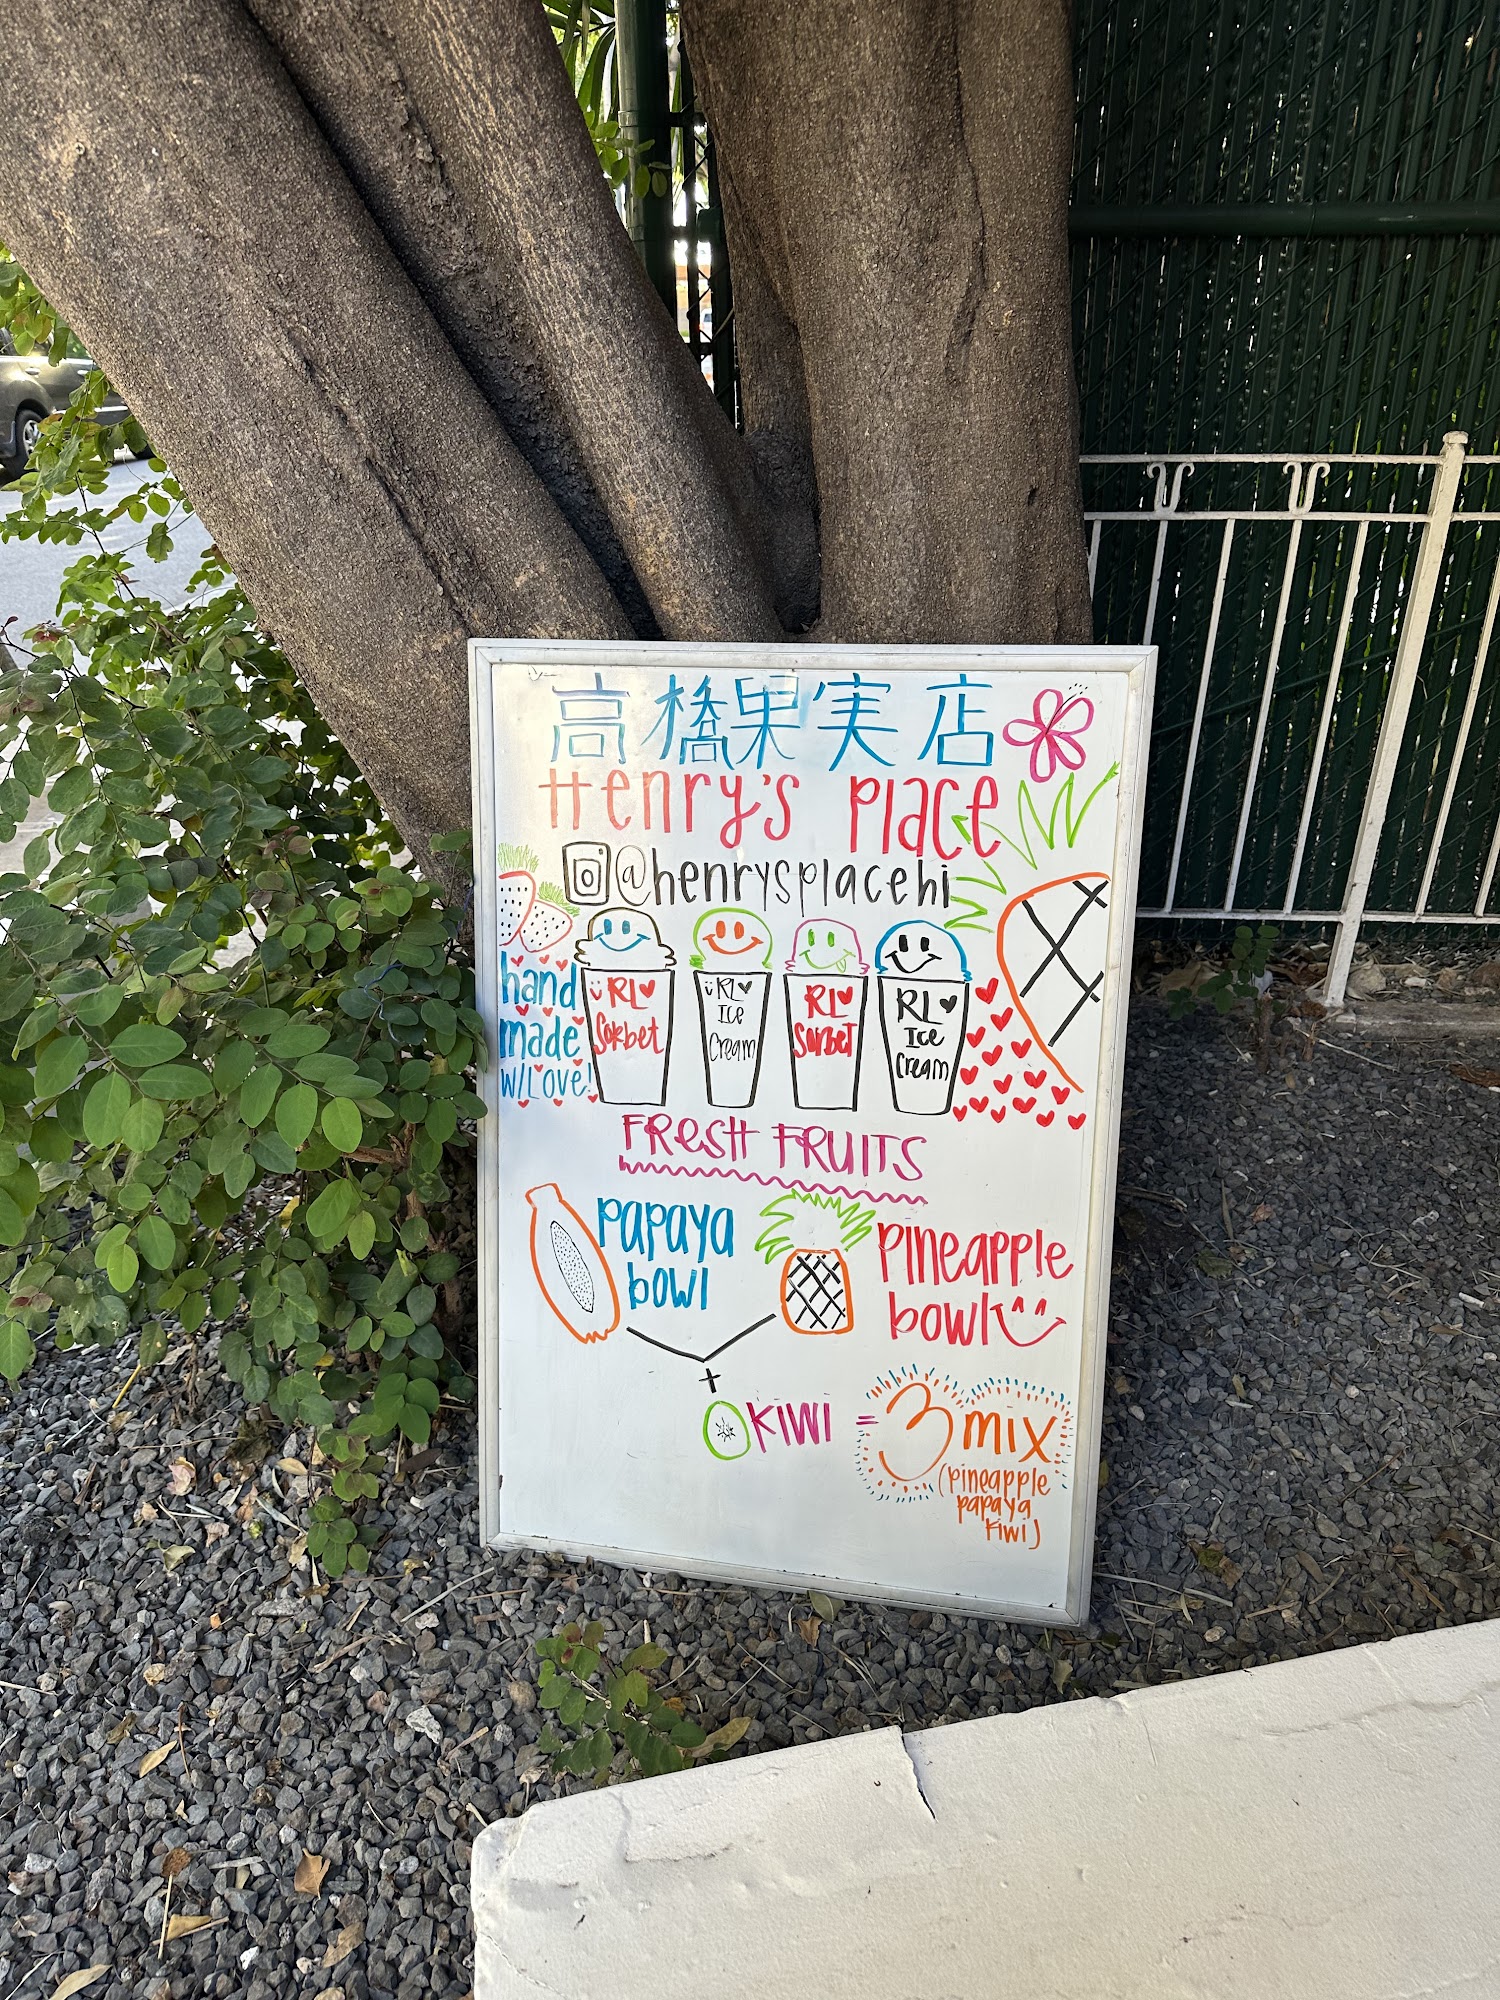 高橋果実店
Henry's Place
@henrysplacehi
hand
made
w/Love!
RL
Sorbet
RL
Ice
Cream
RL
Sorbet
RL
Ice
Cream
FRESH FRUITS
papaya
bowl
pineapple
bowl
+
kiwi = 3 mix
(pineapple
papaya
kiwi)